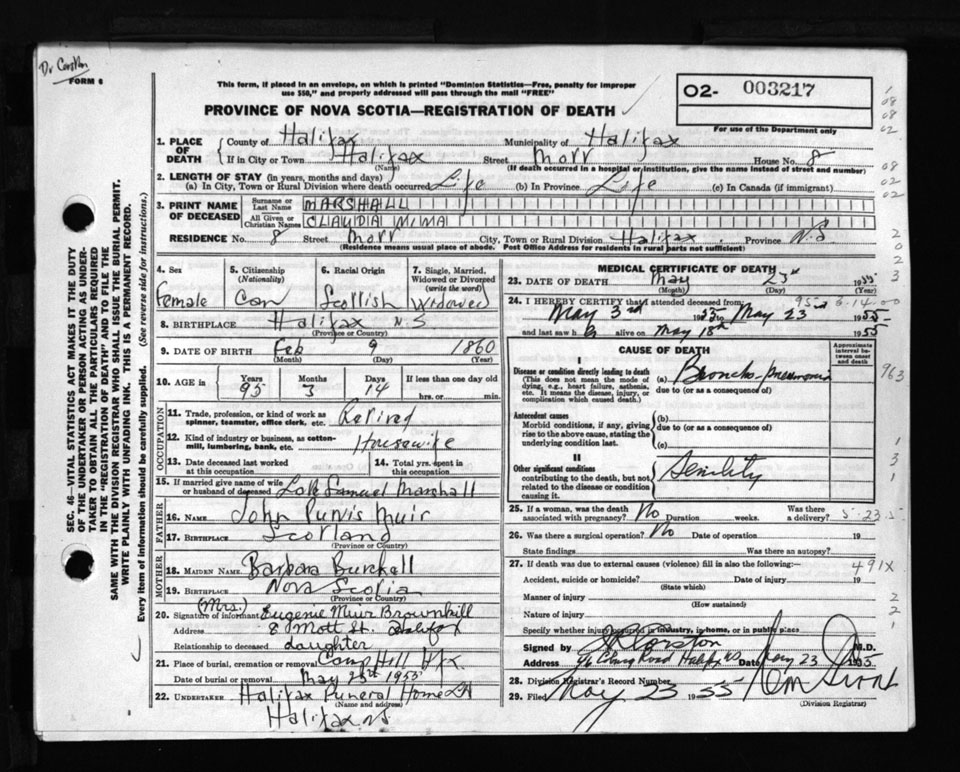 Dr Corston
FORM 6
This form, if placed in an envelope, on which is printed "Dominion Statistics—Free, penalty for improper
use $50," and properly addressed will pass through the mail "FREE"
PROVINCE OF NOVA SCOTIA—REGISTRATION OF DEATH
02- 003217
For use of the Department only
SEC. 46—VITAL STATISTICS ACT MAKES IT THE DUTY
OF THE UNDERTAKER OR PERSON ACTING AS UNDER-
TAKER TO OBTAIN ALL THE PARTICULARS REQUIRED
IN THE "REGISTRATION OF DEATH" AND TO FILE THE
SAME WITH THE DIVISION REGISTRAR WHO SHALL ISSUE THE BURIAL PERMIT.
WRITE PLAINLY WITH UNFADING INK. THIS IS A PERMANENT RECORD.
Every item of information should be carefully supplied. (See reverse side for instructions.)
1. PLACE OF DEATH
County of Halifax Municipality of Halifax
If in City or Town Halifax Street Mott House No. 8
(Name) (If death occurred in a hospital or institution, give the name instead of street and number)
2. LENGTH OF STAY (in years, months and days)
(a) In City, Town or Rural Division where death occurred Life (b) In Province Life (c) In Canada (if immigrant)
3. PRINT NAME OF DECEASED
Surname or Last Name MARSHALL
All Given or Christian Names CLAUDIA MIMA
RESIDENCE No. 8 Street Mott City, Town or Rural Division Halifax Province N.S
(Residence means usual place of abode. Post Office Address for residents in rural parts not sufficient)
4. Sex 5. Citizenship (Nationality) 6. Racial Origin 7. Single, Married, Widowed or Divorced (write the word)
Female Can Scottish Widowed
8. BIRTHPLACE Halifax N.S
(Province or Country)
9. DATE OF BIRTH Feb 9 1860
(Month) (Day) (Year)
10. AGE in Years Months Days If less than one day old
95 3 14 hrs. or min.
OCCUPATION
11. Trade, profession, or kind of work as spinner, teamster, office clerk, etc. Retired
12. Kind of industry or business, as cotton-mill, lumbering, bank, etc. Housewife
13. Date deceased last worked at this occupation 14. Total yrs. spent in this occupation
15. If married give name of wife or husband of deceased Late Samuel Marshall
FATHER
16. NAME John Purvis Muir
17. BIRTHPLACE Scotland
(Province or Country)
MOTHER
18. MAIDEN NAME Barbara Burchall
19. BIRTHPLACE Nova Scotia
(Province or Country)
(Mrs.)
20. Signature of informant Eugenie Muir Brownhill
Address 8 Mott St. Halifax
Relationship to deceased daughter
21. Place of burial, cremation or removal Camp Hill Hfx
Date of burial or removal May 25th 1955
22. UNDERTAKER Halifax Funeral Home
(Name and address)
Halifax NS
MEDICAL CERTIFICATE OF DEATH
23. DATE OF DEATH May 23rd 1955
24. I HEREBY CERTIFY that I attended deceased from
May 3rd 1955 to May 23 1955
and last saw h alive on May 18th 1955
CAUSE OF DEATH
Approximate interval between onset and death
I
Disease or condition directly leading to death
(This does not mean the mode of dying, e.g., heart failure, asthenia, etc. It means the disease, injury, or complication which caused death.)
(a) Broncho-pneumonia
due to (or as a consequence of)
Antecedent causes
Morbid conditions, if any, giving rise to the above cause, stating the underlying condition last.
(b)
due to (or as a consequence of)
(c)
II
Other significant conditions
contributing to the death, but not related to the disease or condition causing it.
Senility
25. If a woman, was the death associated with pregnancy? No Duration weeks. Was there a delivery? 5-23-5
26. Was there a surgical operation? No Date of operation 19
State findings Was there an autopsy?
27. If death was due to external causes (violence) fill in also the following:— 491X
Accident, suicide or homicide? Date of injury 19
(State which)
Manner of injury
(How sustained)
Nature of injury
Specify whether injury occurred in industry, in home, or in public place
Signed by Corston M.D.
Address Road Halifax NS Date May 23 1955
28. Division Registrar's Record Number
29. Filed May 23 1955
(Division Registrar)
1
08
08
02
08
02
02
2
0
2
3
963
1
3
1
2
2
1